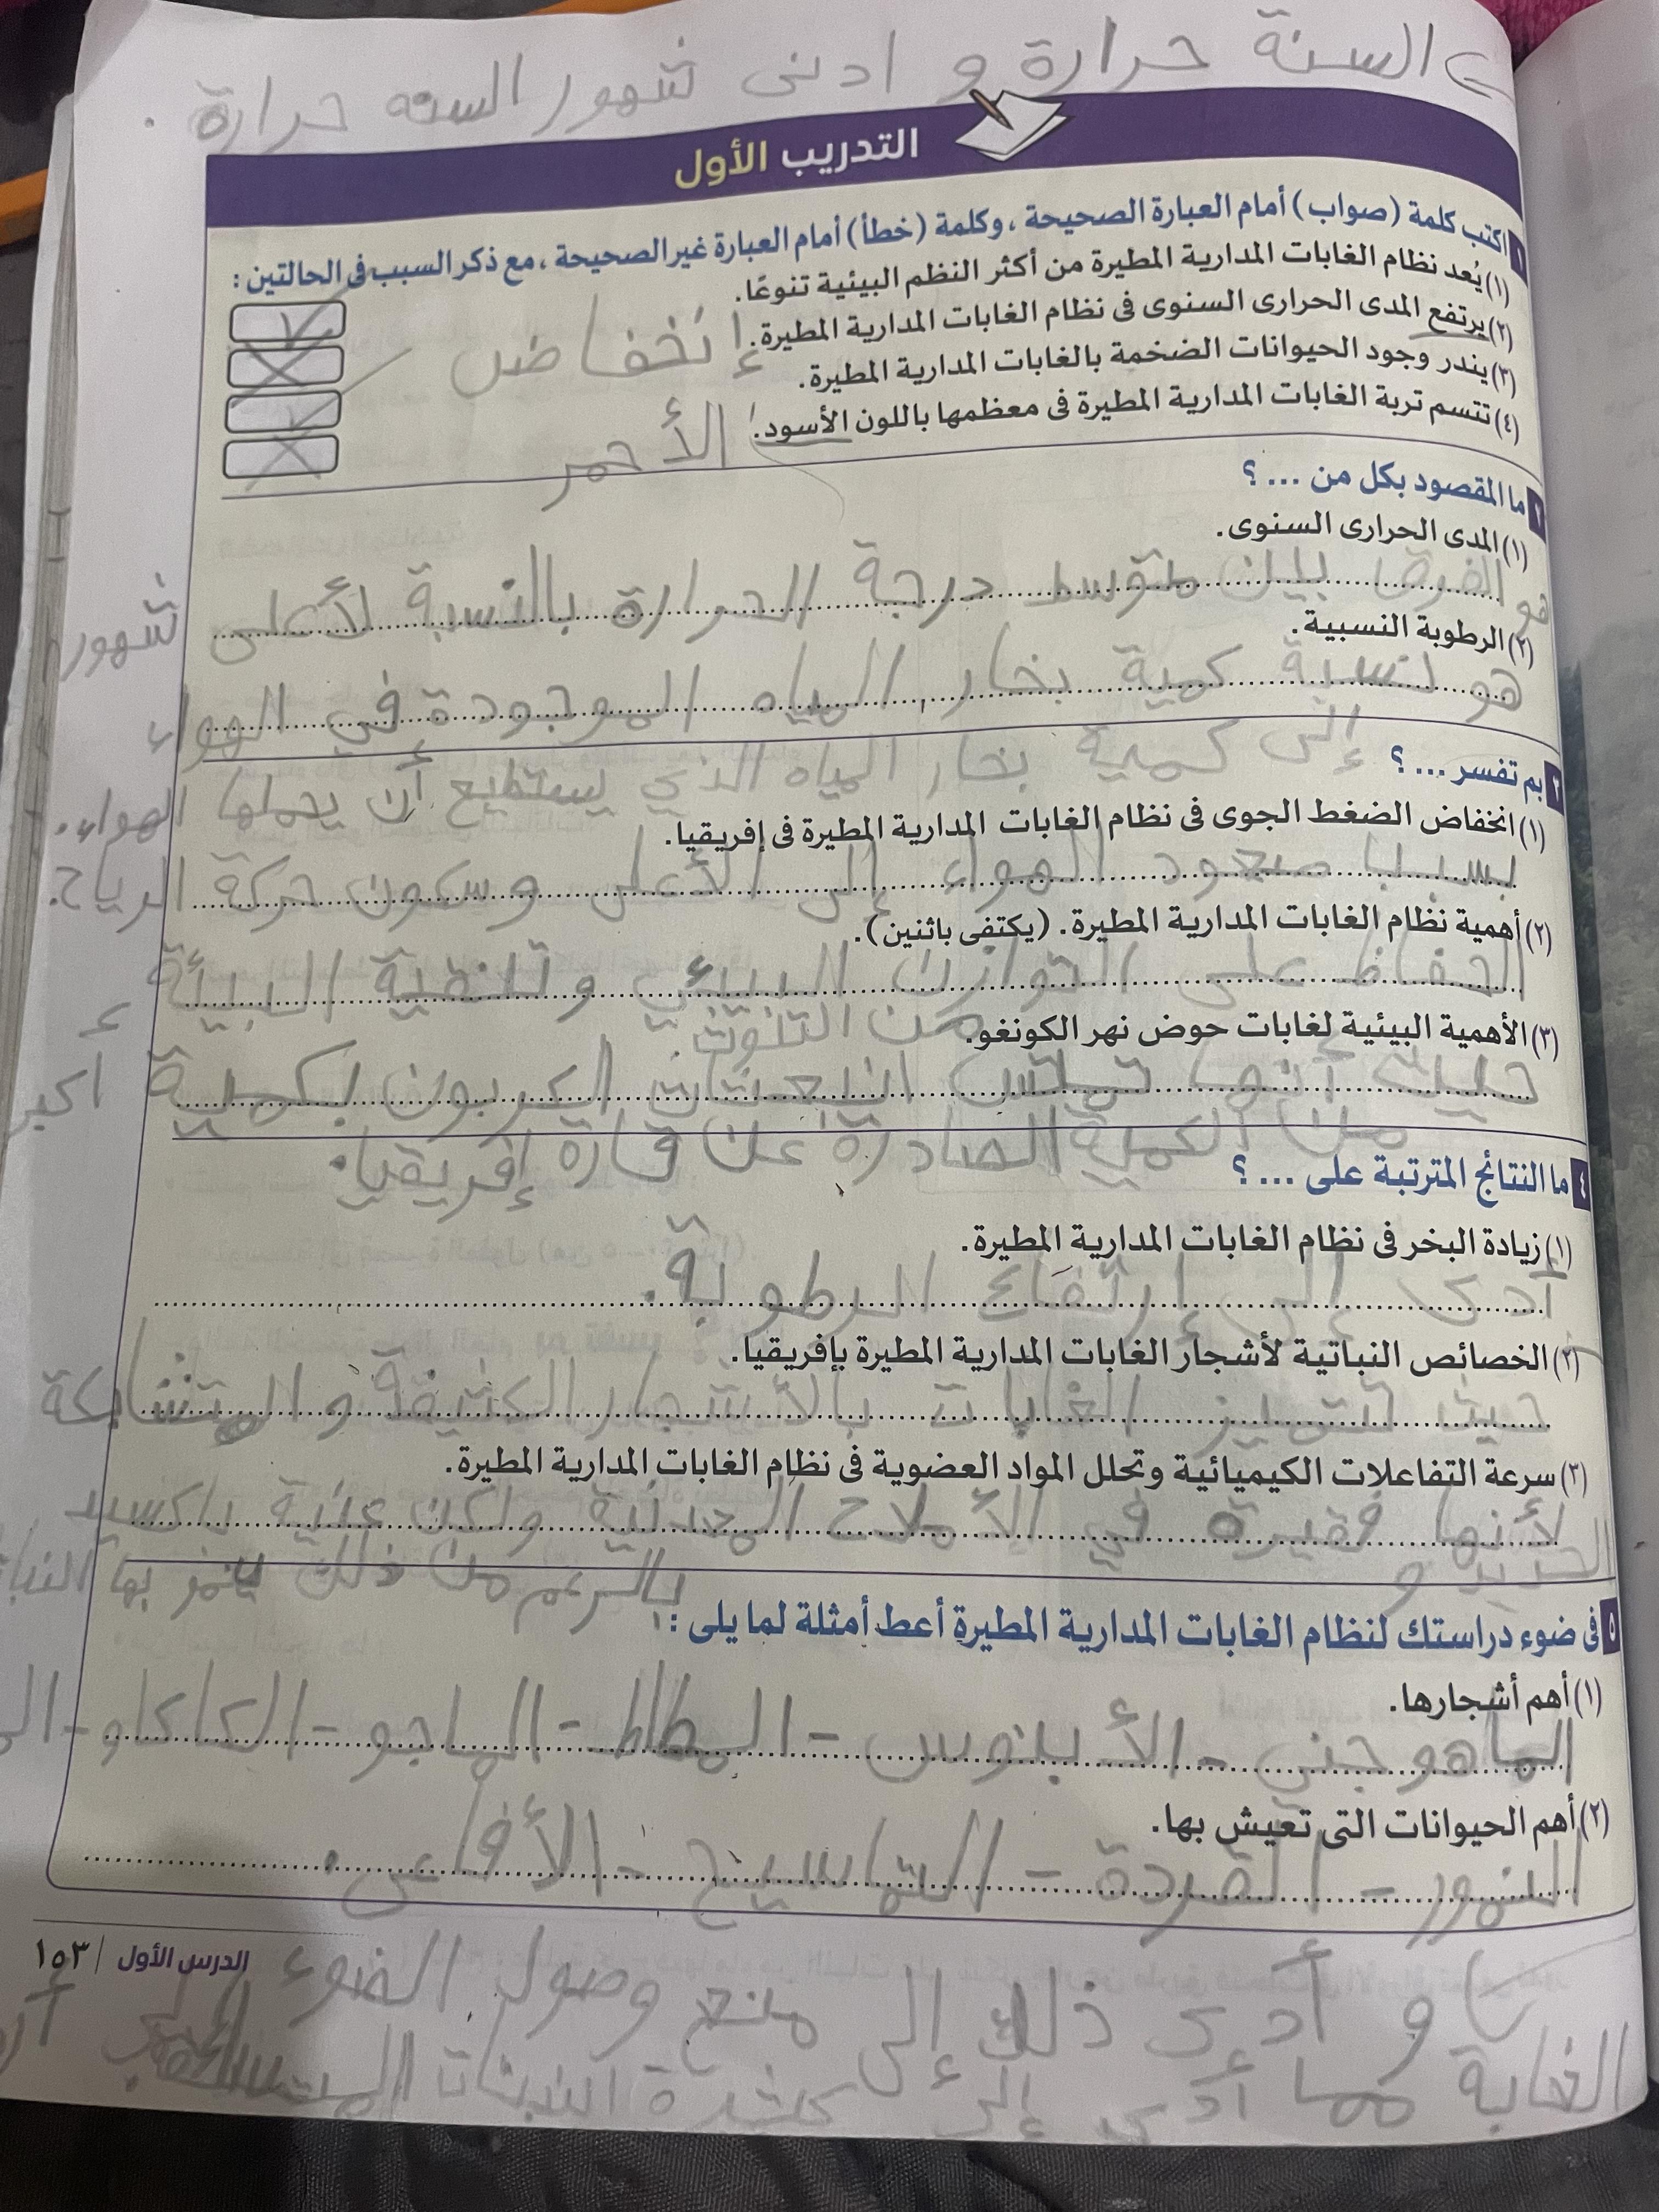 السنة حرارة و ادنى شهور السنه حرارة .
التدريب الأول
١ اكتب كلمة (صواب) أمام العبارة الصحيحة ، وكلمة (خطأ) أمام العبارة غير الصحيحة ، مع ذكر السبب فى الحالتين :
(١) يُعد نظام الغابات المدارية المطيرة من أكثر النظم البيئية تنوعًا.
(٢) يرتفع المدى الحرارى السنوى فى نظام الغابات المدارية المطيرة. إنخفاض
(٣) يندر وجود الحيوانات الضخمة بالغابات المدارية المطيرة.
(٤) تتسم تربة الغابات المدارية المطيرة فى معظمها باللون الأسود. الأحمر
ما المقصود بكل من ... ؟
(١) المدى الحرارى السنوى.
هو الفرق بين متوسط درجة الحرارة بالنسبة لأعلى شهور
(٢) الرطوبة النسبية.
هو نسبة كمية بخار المياه الموجودة في الهواء
إلى كمية بخار المياه الذي يستطيع أن يحملها الهواء.
بم تفسر ... ؟
(١) انخفاض الضغط الجوى فى نظام الغابات المدارية المطيرة فى إفريقيا.
بسبب صعود الهواء إلى الأعلى وسكون حركة الرياح.
(٢) أهمية نظام الغابات المدارية المطيرة. (يكتفى باثنين).
الحفاظ على التوازن البيئي و تنقية البيئة
من التلوث.
(٣) الأهمية البيئية لغابات حوض نهر الكونغو.
حيث أنها انبعثات الكربون بكمية أكبر
من الكمية الصادرة عن قارة إفريقيا.
٤ ما النتائج المترتبة على ... ؟
(١) زيادة البخر فى نظام الغابات المدارية المطيرة.
أدى إلى إرتفاع الرطوبة.
(٢) الخصائص النباتية لأشجار الغابات المدارية المطيرة بإفريقيا.
حيث تتميز الغابات بالأشجار الكثيفة و المتشابكة
(٣) سرعة التفاعلات الكيميائية وتحلل المواد العضوية فى نظام الغابات المدارية المطيرة.
لأنها فقيرة في الأملاح المعدنية ولكن غنية باكسيد
الحديد و بالرغم من ذلك ينمو بها
٥ فى ضوء دراستك لنظام الغابات المدارية المطيرة أعط أمثلة لما يلى :
(١) أهم أشجارها.
الماهوجني - الأبنوس - المطاط - الماجو - الكاكاو -
(٢) أهم الحيوانات التى تعيش بها.
النمور - القردة - التماسيح - الأفاعى .
الدرس الأول / ١٥٣
و أدى ذلك إلى منع وصول الضوء
الغابة مما أدى إلى كثرة النباتات